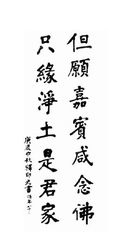 但願嘉賓咸念佛
只緣淨土是君家